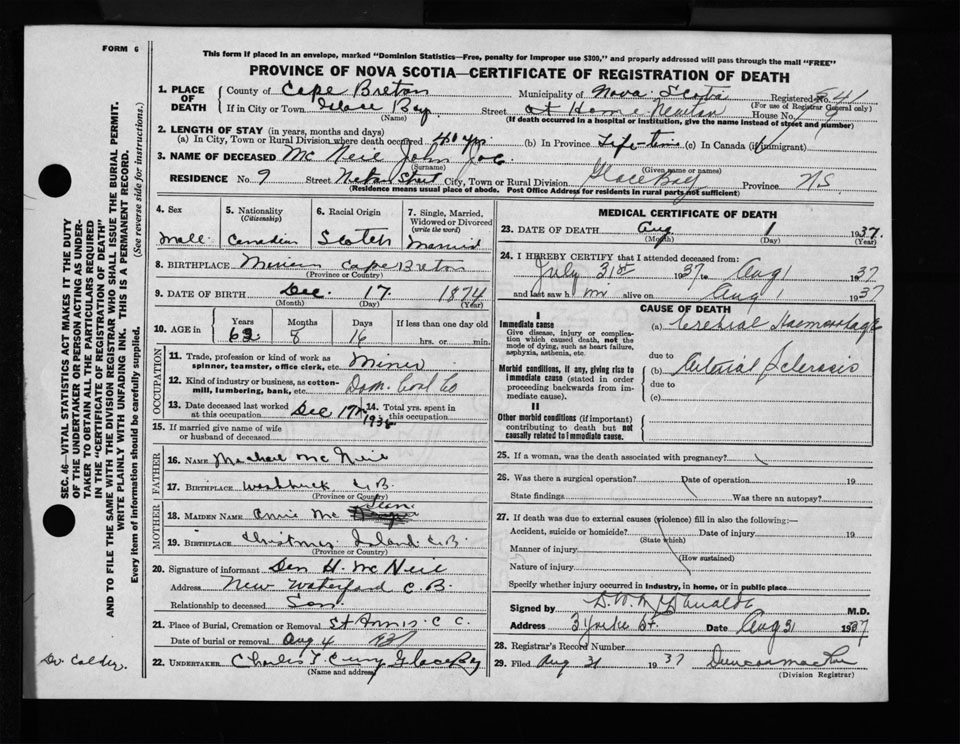 FORM 6
This form if placed in an envelope, marked "Dominion Statistics—Free, penalty for improper use $300," and properly addressed will pass through the mail "FREE"
PROVINCE OF NOVA SCOTIA—CERTIFICATE OF REGISTRATION OF DEATH
1. PLACE OF DEATH County of Cape Breton Municipality of Nova Scotia Registered No. 841
(For use of Registrar General only)
If in City or Town Glace Bay Street At Home House No. 9
(Name) (If death occurred in a hospital or institution, give the name instead of street and number)
2. LENGTH OF STAY (in years, months and days)
(a) In City, Town or Rural Division where death occurred 40 yrs (b) In Province Life-time (c) In Canada (if immigrant)
3. NAME OF DECEASED Mc Neil John
(Surname) (Given name or names)
RESIDENCE No. 9 Street City, Town or Rural Division Glace Bay Province N S
(Residence means usual place of abode. Post Office Address for residents in rural parts not sufficient)
4. Sex
Male
5. Nationality
(Citizenship)
Canadian
6. Racial Origin
Scotch
7. Single, Married, Widowed or Divorced
(write the word)
Married
8. BIRTHPLACE Cape Breton
(Province or Country)
9. DATE OF BIRTH Dec. 17 1874
(Month) (Day) (Year)
10. AGE in Years Months Days If less than one day old
62 8 16 hrs. or min.
OCCUPATION
11. Trade, profession or kind of work as spinner, teamster, office clerk, etc. Miner
12. Kind of industry or business, as cotton-mill, lumbering, bank, etc. Dom. Coal Co
13. Date deceased last worked at this occupation Dec 17th
14. Total yrs. spent in this occupation
15. If married give name of wife or husband of deceased
FATHER
16. NAME Michael Mc Neil
17. BIRTHPLACE C.B.
(Province or Country)
MOTHER
18. MAIDEN NAME Annie Mc Lean
19. BIRTHPLACE Christmas Island C.B.
(Province or Country)
20. Signature of informant H. Mc Neil
Address New Waterford C. B.
Relationship to deceased Son
21. Place of Burial, Cremation or Removal St Anns C C.
Date of burial or removal Aug 4 1937
22. UNDERTAKER Charles T. Curry Glace Bay
(Name and address)
MEDICAL CERTIFICATE OF DEATH
23. DATE OF DEATH Aug 1 1937.
(Month) (Day) (Year)
24. I HEREBY CERTIFY that I attended deceased from:
July 31st 1937 to Aug 1 1937
and last saw him alive on Aug 1 1937
CAUSE OF DEATH
I
Immediate cause
Give disease, injury or complication which caused death, not the mode of dying, such as heart failure, asphyxia, asthenia, etc.
(a) Cerebral Haemorrhage
due to
Morbid conditions, if any, giving rise to immediate cause (stated in order proceeding backwards from immediate cause).
(b) Arterial Sclerosis
due to
(c)
II
Other morbid conditions (if important) contributing to death but not causally related to immediate cause.
25. If a woman, was the death associated with pregnancy?
26. Was there a surgical operation? Date of operation 19
State findings Was there an autopsy?
27. If death was due to external causes (violence) fill in also the following:—
Accident, suicide or homicide? Date of injury 19
(State which)
Manner of injury
(How sustained)
Nature of injury
Specify whether injury occurred in industry, in home, or in public place
Signed by D. W. McDonald M.D.
Address St. Date Aug 31 1937
28. Registrar's Record Number
29. Filed Aug 31 1937
(Division Registrar)
SEC. 46—VITAL STATISTICS ACT MAKES IT THE DUTY
OF THE UNDERTAKER OR PERSON ACTING AS UNDER-
TAKER TO OBTAIN ALL THE PARTICULARS REQUIRED
IN THE "CERTIFICATE OF REGISTRATION OF DEATH"
AND TO FILE THE SAME WITH THE DIVISION REGISTRAR WHO SHALL ISSUE THE BURIAL PERMIT.
WRITE PLAINLY WITH UNFADING INK. THIS IS A PERMANENT RECORD.
Every item of information should be carefully supplied. (See reverse side for instructions.)